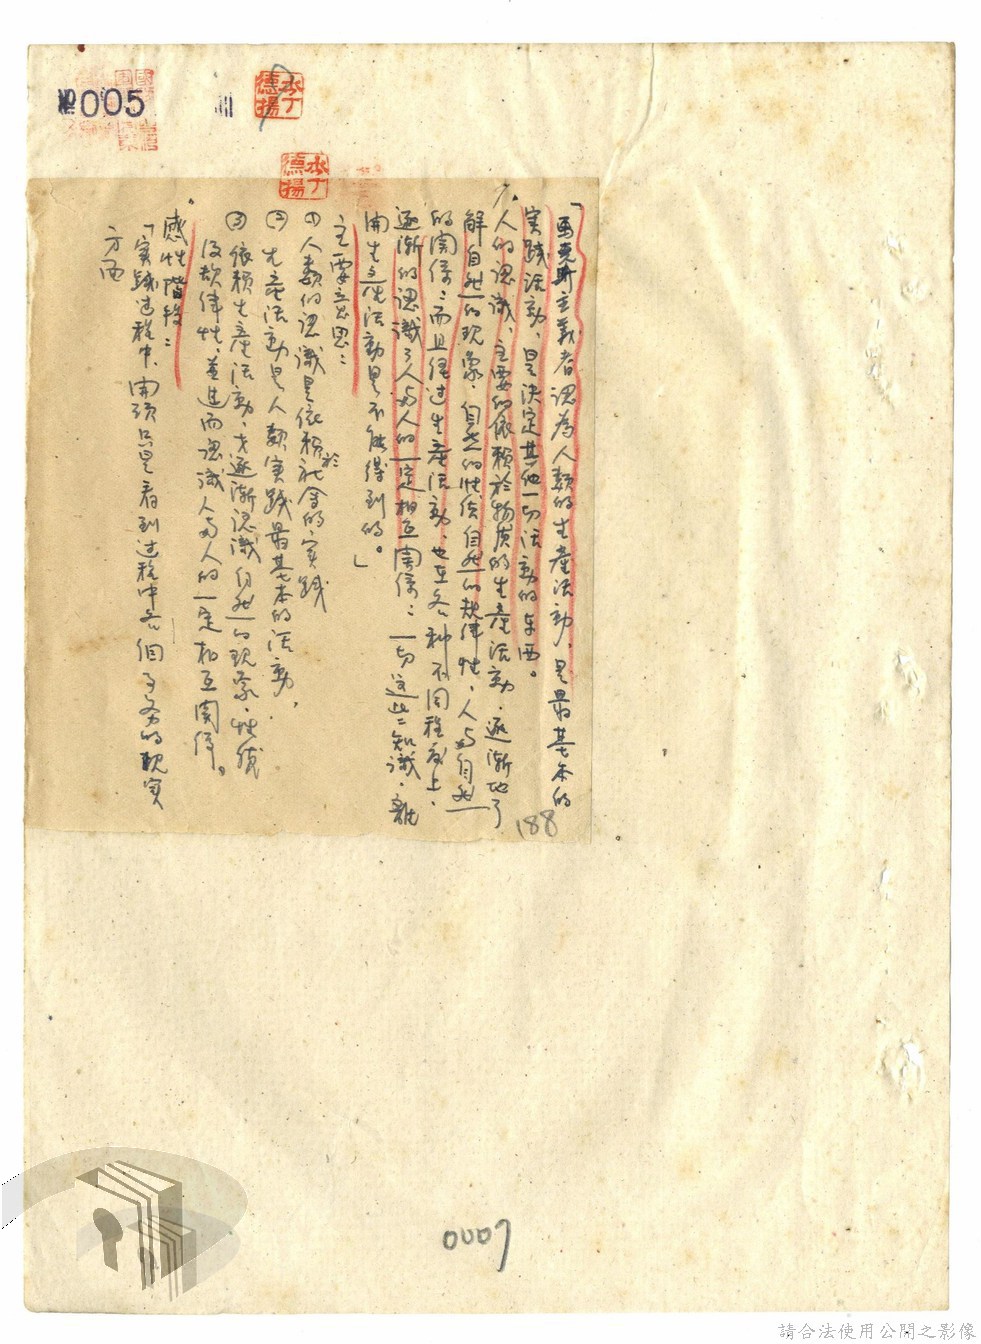 №005
水丁德揚
水丁德揚
「馬克斯主義者認為人類的生產活動，是最基本的
实踐活動，是決定其他一切活動的东西。
人的認識，主要的依賴於物质的生產活動，逐漸地了
解自然的現象，自然的性质自然的規律性，人与自然
的関係；而且經过生產活動，也在各种不同程度上，
逐漸的認識了人与人的一定相互関係；一切这些知識，離
開生產活動是不能得到的。」
主要意思：
① 人類的認識是依賴於社会的实踐
② 生產活動是人類实踐最基本的活動，
③ 依賴生產活動，才逐漸認識自然的現象，性质
及規律性，並进而認識人与人的一定相互関係。
感性階段：
「实踐过程中，開頭只是看到过程中各個事务的現实
方面
188
0007
請合法使用公開之影像